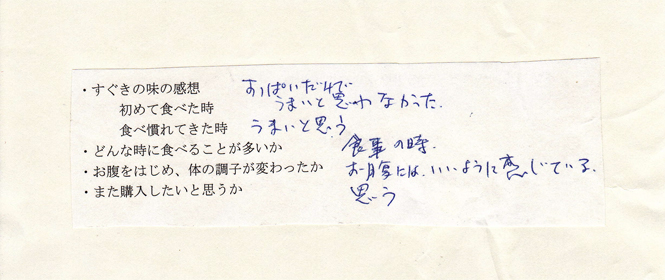 ・すぐきの味の感想 すっぱいだけで
うまいと思わなかった.
初めて食べた時
食べ慣れてきた時 うまいと思う
・どんな時に食べることが多いか 食事の時.
・お腹をはじめ、体の調子が変わったか お腹には、いいように感じている.
・また購入したいと思うか 思う